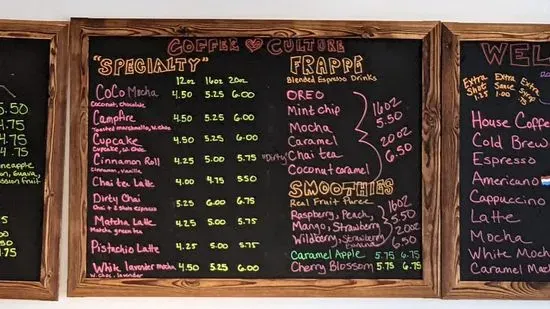 5.50
4.75
4.75
4.75
4.75
Pineapple
on, Guava,
ssion fruit
COFFEE CULTURE
"SPECIALTY"
12oz 16oz 20oz
CoCo Mocha 4.50 5.25 6.00
Coconut, chocolate
Campfire 4.50 5.25 6.00
Toasted marshmallow, W.choc
Cupcake 4.50 5.25 6.00
Cupcake, W.choc
Cinnamon Roll 4.25 5.00 5.75
Cinnamon, vanilla
Chai tea Latte 4.00 4.75 5.50
Dirty Chai 5.00 5.75 6.00
Chai + 2 shots Espresso
Matcha Latte 4.25 5.00 5.75
Matcha green tea
Pistachio Latte 4.25 5.00 5.75
White lavender mocha 4.50 5.25 6.00
W.choc, lavender
FRAPPÉ
Blended Espresso Drinks
OREO
Mint chip
Mocha
Caramel
"Dirty" Chai tea
Coconut caramel
16oz
5.50
20oz
6.50
SMOOTHIES
Real Fruit Puree
Raspberry, Peach,
Mango, Strawberry
Wildberry, Strawberry
Banana
16oz
5.50
20oz
6.50
Caramel Apple 5.75 6.75
Cherry Blossom 5.75 6.75
WEL
Extra Shot 1.25
Extra Sauce 1.00
Extra
House Coffe
Cold Brew
Espresso
Americano
Cappuccino
Latte
Mocha
White Moch
Caramel Mac